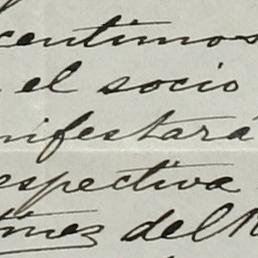 centimos
el socio
nifestará
espectiva
tínez del R